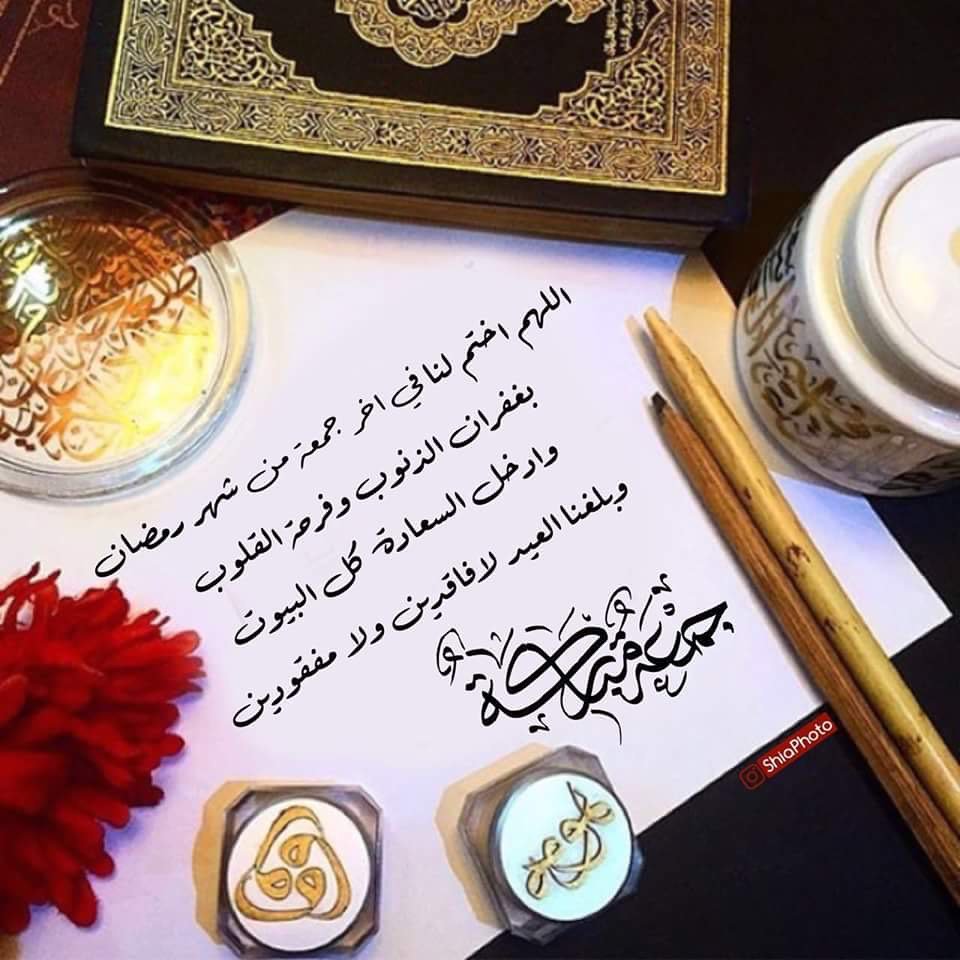 اللهم اختم لنا في اخر جمعة من شهر رمضان
بغفران الذنوب وفرحة القلوب
وادخل السعادة كل البيوت
وبلغنا العيد لا فاقدين ولا مفقودين
جمعة مباركة
ShiaPhoto